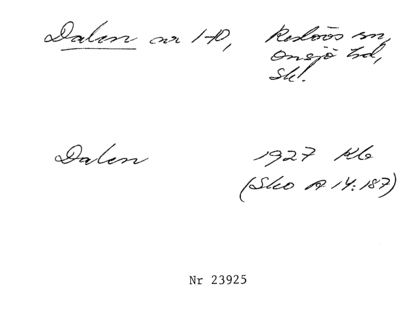 Dalen nr 1-10, Reslövs sn,
Onsjö hd,
Sk!
Dalen 1927 Kb
(Sko A 14:187)
Nr 23925